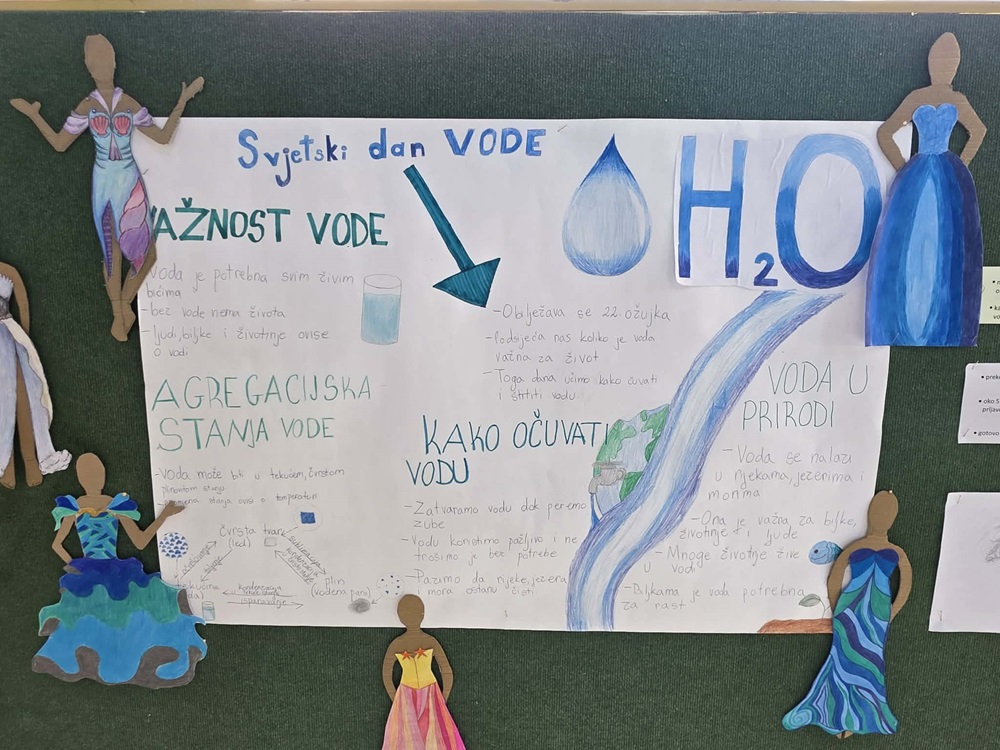 Svjetski dan VODE
H2O
AŽNOST VODE
Voda je potrebna svim živim
bićima
- bez vode nema života
- ljudi, biljke i životinje ovise
o vodi
- Obilježava se 22. ožujka
- Podsjeća nas koliko je voda
važna za život
- Toga dana učimo kako čuvati
i štititi vodu
AGREGACIJSKA
STANJA VODE
- Voda može biti u tekućem, čvrstom
stanja ovisi o temperaturi
Čvrsta tvar
(led)
plin
(vodena para)
kondenzacija
isparavanje
KAKO OČUVATI
VODU
- Zatvaramo vodu dok peremo
zube
- Vodu koristimo pažljivo i ne
trošimo je bez potrebe
- Pazimo da rijeke, jezera
i mora ostanu čisti
VODA U
PRIRODI
- Voda se nalazi
u rijekama, jezerima i
morima
- Ona je važna za biljke,
životinje i ljude
- Mnoge životinje žive
u vodi
- Biljkama je voda potrebna
za rast
• prek
• oko S
prijav
• gotovo